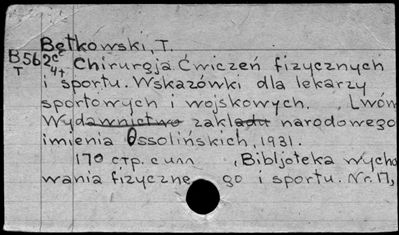 Bętkowski, T.
B562cc Chirurgja Ćwiczeń fizycznych
T 4+
i sportu. Wskazówki dla lekarzy
sportowych i wojskowych. Lwów
Wydawnictwo zakładu narodowego
imienia Ossolińskich, 1931.
170 стр. с илл , Bibljoteka wycho
wania fizyczne go i sportu. Nr. 17,